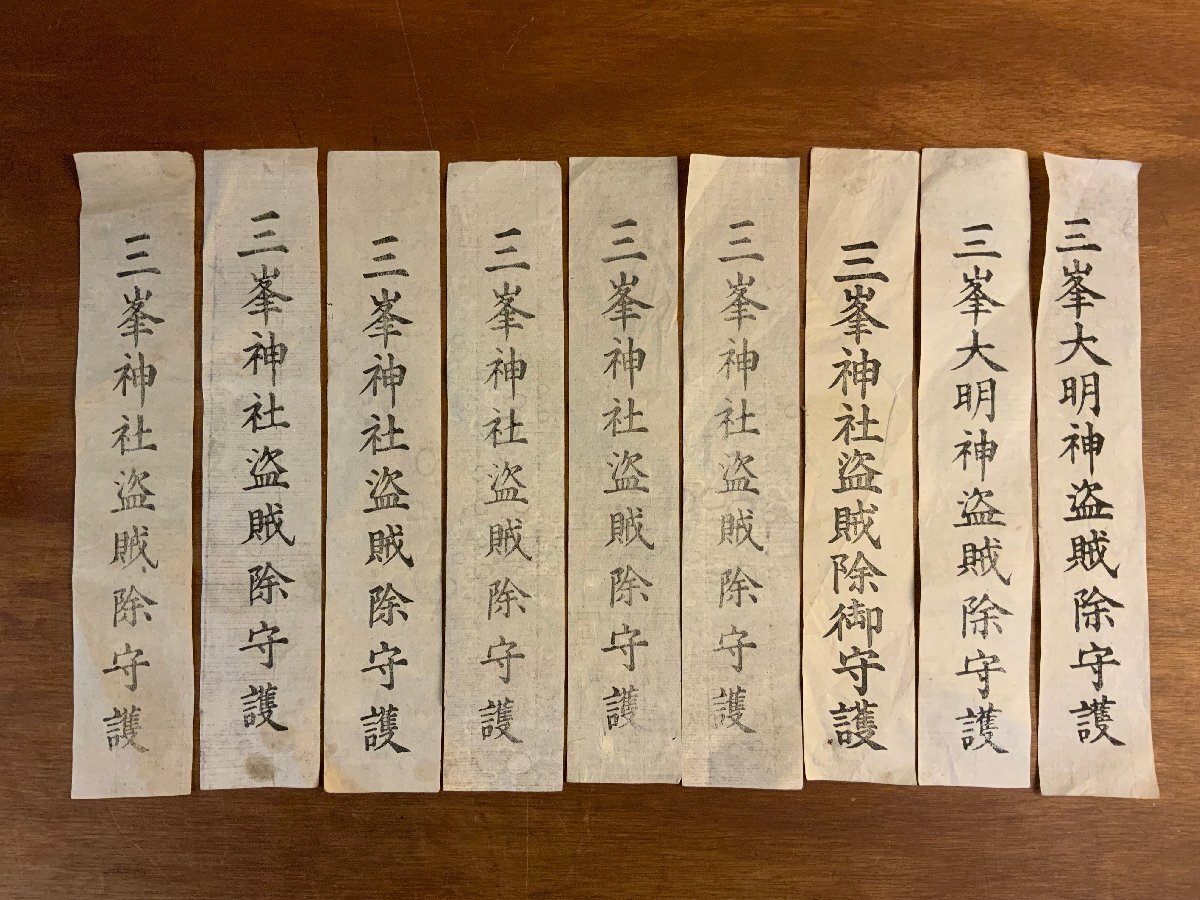 三峯大明神盗賊除守護
三峯大明神盗賊除守護
三峯神社盗賊除御守護
三峯神社盗賊除守護
三峯神社盗賊除守護
三峯神社盗賊除守護
三峯神社盗賊除守護
三峯神社盗賊除守護
三峯神社盗賊除守護